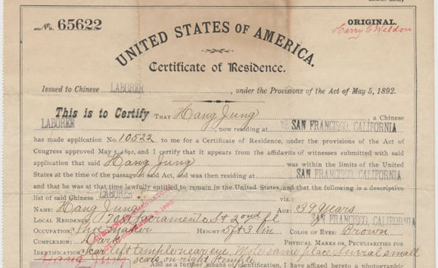 No. 65622
ORIGINAL.
UNITED STATES OF AMERICA.
Certificate of Residence.
Issued to Chinese LABORER, under the Provisions of the Act of May 5, 1892.
This is to Certify THAT Hang Jung a Chinese
LABORER now residing at SAN FRANCISCO, CALIFORNIA
has made application No. 10522 to me for a Certificate of Residence, under the provisions of the Act of
Congress approved May 5, 1892, and I certify that it appears from the affidavits of witnesses submitted with said
application that said Hang Jung was within the limits of the
United States at the time of the passage of said Act, and was then residing at SAN FRANCISCO, CALIFORNIA
and that he was at that time lawfully entitled to remain in the United States, and that the following is a descriptive
list of said Chinese LABORER
NAME: Hang Jung AGE: 39 Years
LOCAL RESIDENCE: Sacramento St 2nd fl SAN FRANCISCO, CALIFORNIA
OCCUPATION: HEIGHT: 5 ft 3 in COLOR OF EYES: Brown
COMPLEXION: Dark PHYSICAL MARKS OR PECULIARITIES FOR
IDENTIFICATION: Scar left temple near eye, same place, several small
scars on right temple